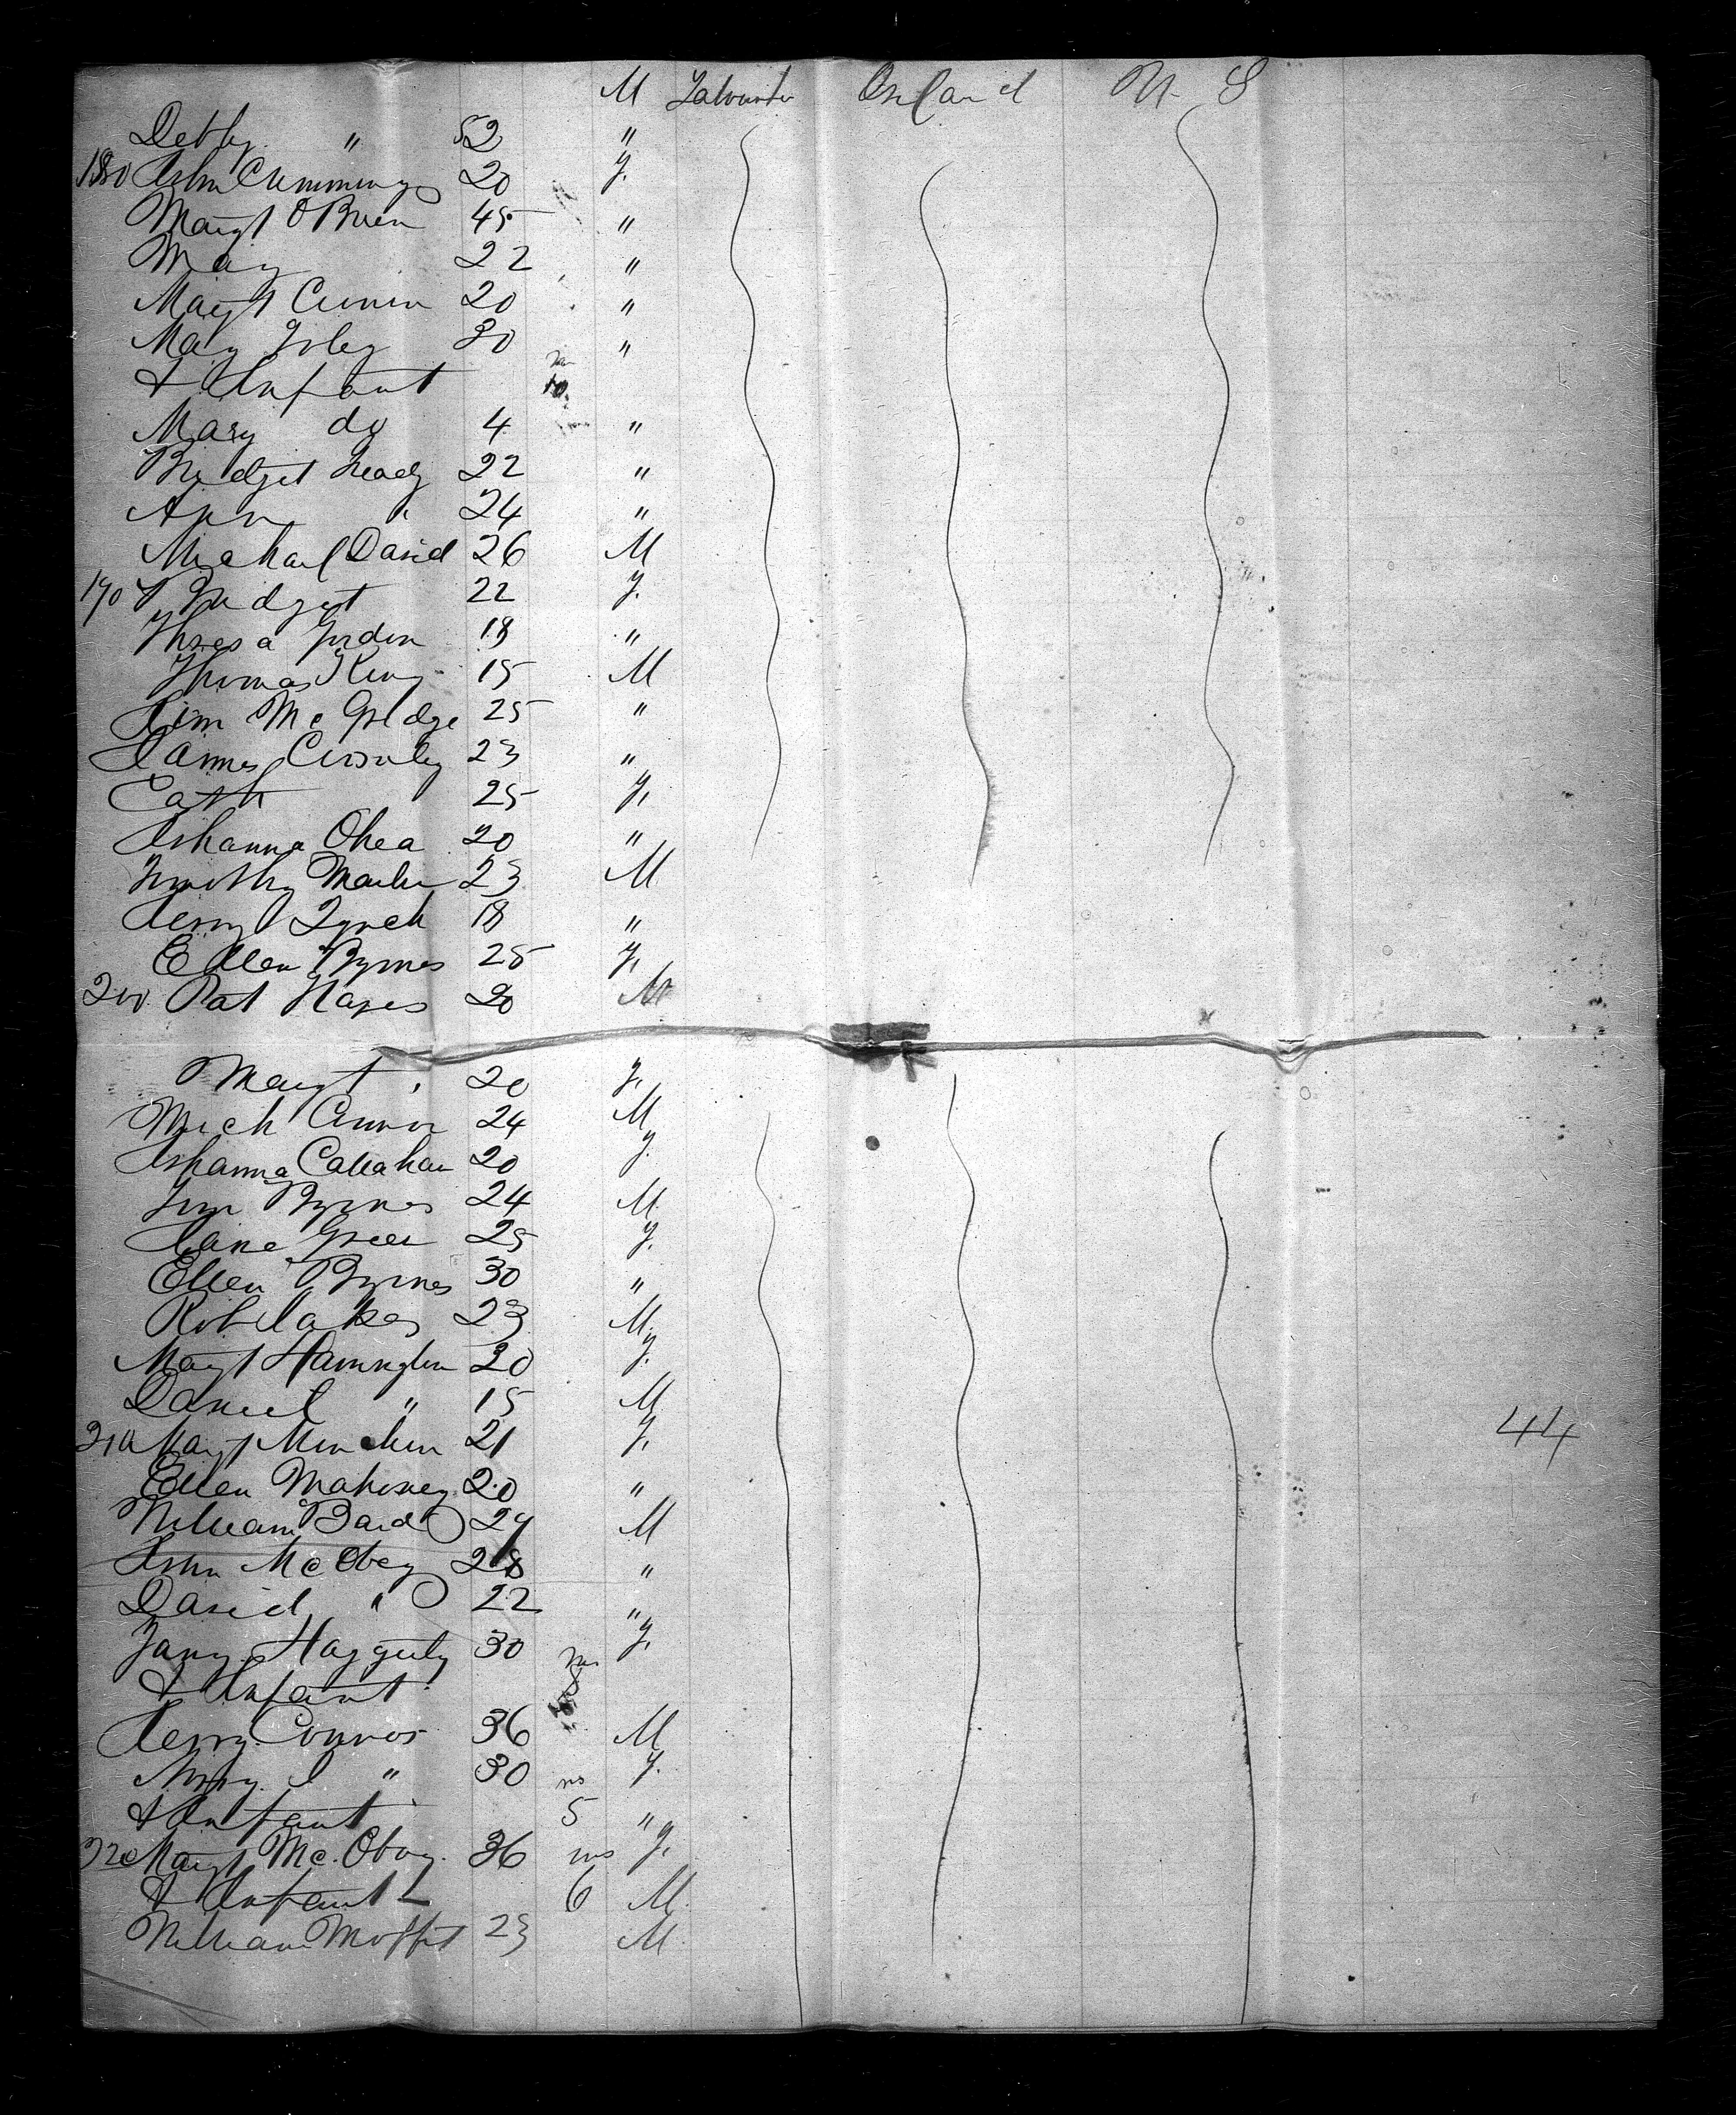 M Labourer Ireland U. S
Debby " 52 "
180 John Cummings 20 F.
Margt OBrien 45 "
Mary 22 "
Margt Connor 20 "
Mary Foley 30 "
& Infant ms 10
Mary do 4 "
Bridget Leady 22 "
Ann " 24 "
Michael David 26 M
190 Bridget 22 F.
Thresa Jordon 18 "
Thomas King 15 M
Jim Mc 25 "
James Crowley 23 "
Cath 25 F.
Johanna Ohea 20 "
Timothy 23 M
Jerry Lynch 18 "
Ellen Byrnes 25 F.
200 Pat Hayes 20 M
Margt " 20 F.
Mich Connor 24 M
Johanna Callahan 20 F.
Jim Byrnes 24 M
Jane Green 25 F.
Ellen Byrnes 30 "
Rob 23 M.
Margt Harrington 20 F.
Daniel " 15 M
44
210 Margt 21 F.
Ellen Mahoney 20 "
William Baird 29 M
John McOboy 28 "
David " 22 "
Haggerty 30 F.
& Infant ms 8
Jerry Connor 36 M
" 30 F.
& Infant ms 5 "
220 Margt Mc.Oboy 36 F.
& Infant ms 6 M.
William Moffit 23 M.